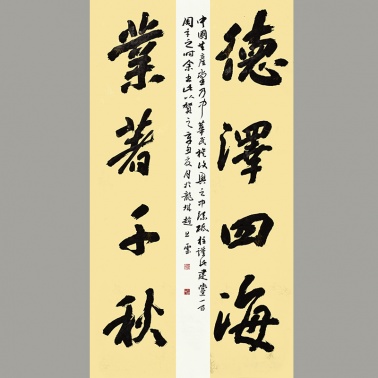 德澤四海
中國共產黨乃中華民族復興之中流砥柱謹此建黨一百
周年之時余書此以賀之辛丑夏月於龍城趙
業著千秋